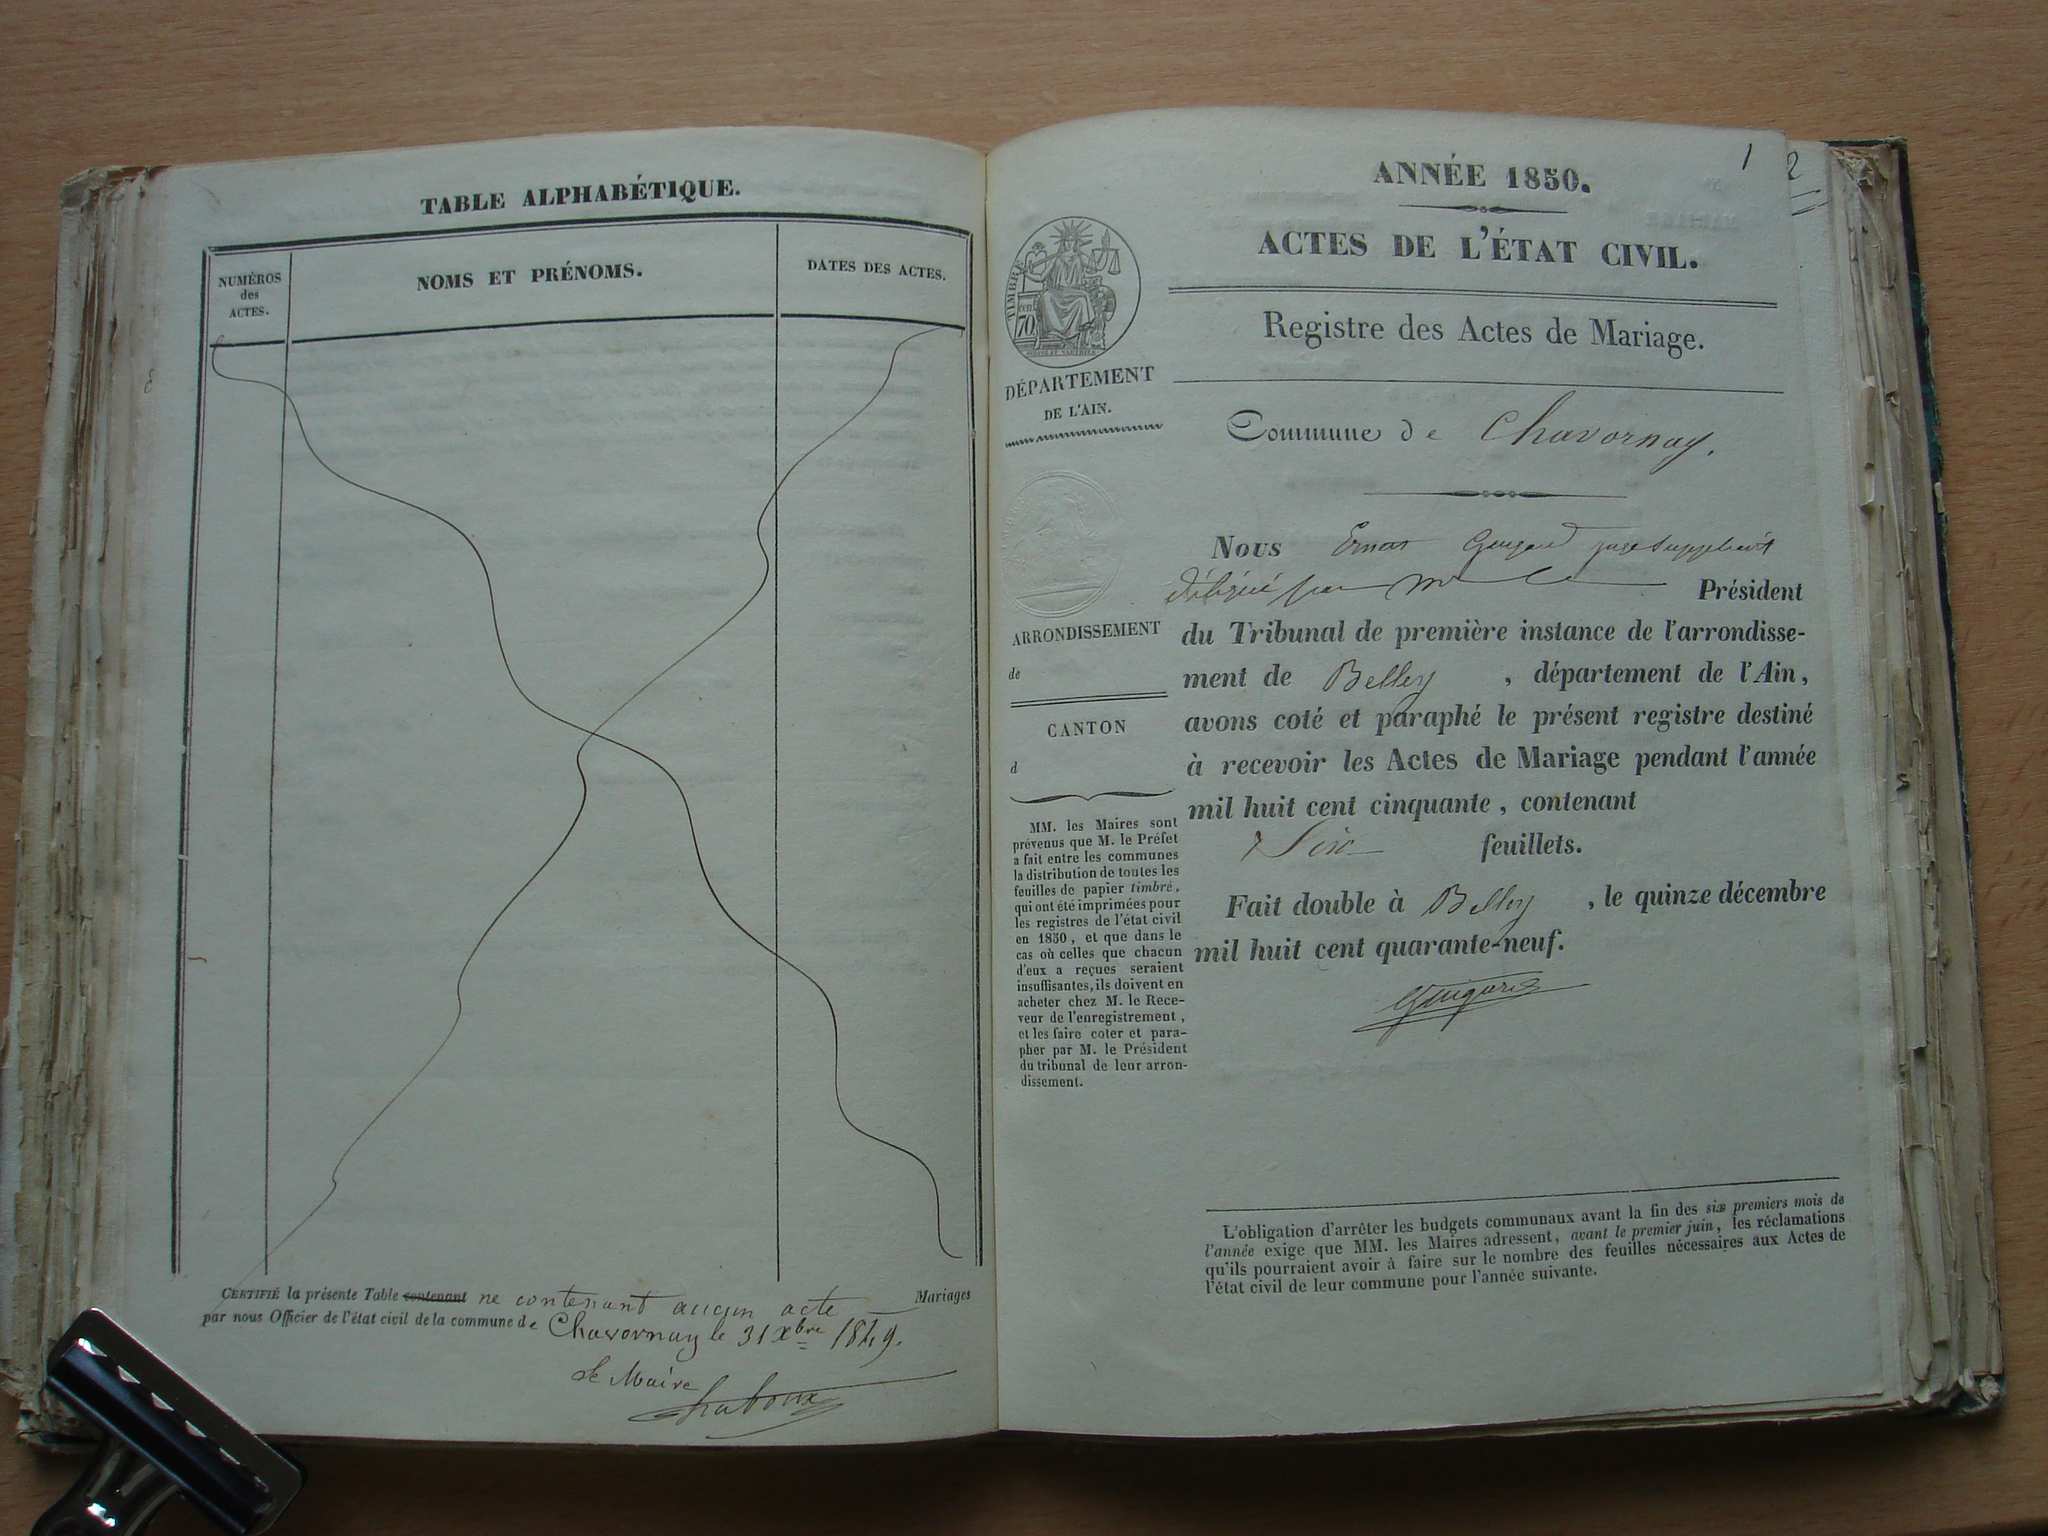 TABLE ALPHABÉTIQUE.
NUMÉROS
des
ACTES.
NOMS ET PRÉNOMS.
DATES DES ACTES.
CERTIFIÉ la présente Table contenant ne contenant aucun acte Mariages
par nous Officier de l'état civil de la commune de Chavornay le 31 Xbre 1849.
Le Maire
1
2
ANNÉE 1850.
ACTES DE L'ÉTAT CIVIL.
Registre des Actes de Mariage.
TIMBRE
70
DÉPARTEMENT
DE L'AIN.
Commune de Chavornay.
Nous juge suppléant
délégué par Mr le Président
du Tribunal de première instance de l'arrondisse-
ment de Belley, département de l'Ain,
avons coté et paraphé le présent registre destiné
à recevoir les Actes de Mariage pendant l'année
mil huit cent cinquante, contenant
Six feuillets.
Fait double à Belley, le quinze décembre
mil huit cent quarante-neuf.
ARRONDISSEMENT
de
CANTON
d
MM. les Maires sont
prévenus que M. le Préfet
a fait entre les communes
la distribution de toutes les
feuilles de papier timbré,
qui ont été imprimées pour
les registres de l'état civil
en 1850, et que dans le
cas où celles que chacun
d'eux a reçues seraient
insuffisantes, ils doivent en
acheter chez M. le Rece-
veur de l'enregistrement,
et les faire coter et para-
pher par M. le Président
du tribunal de leur arron-
dissement.
L'obligation d'arrêter les budgets communaux avant la fin des six premiers mois de
l'année exige que MM. les Maires adressent, avant le premier juin, les réclamations
qu'ils pourraient avoir à faire sur le nombre des feuilles nécessaires aux Actes de
l'état civil de leur commune pour l'année suivante.